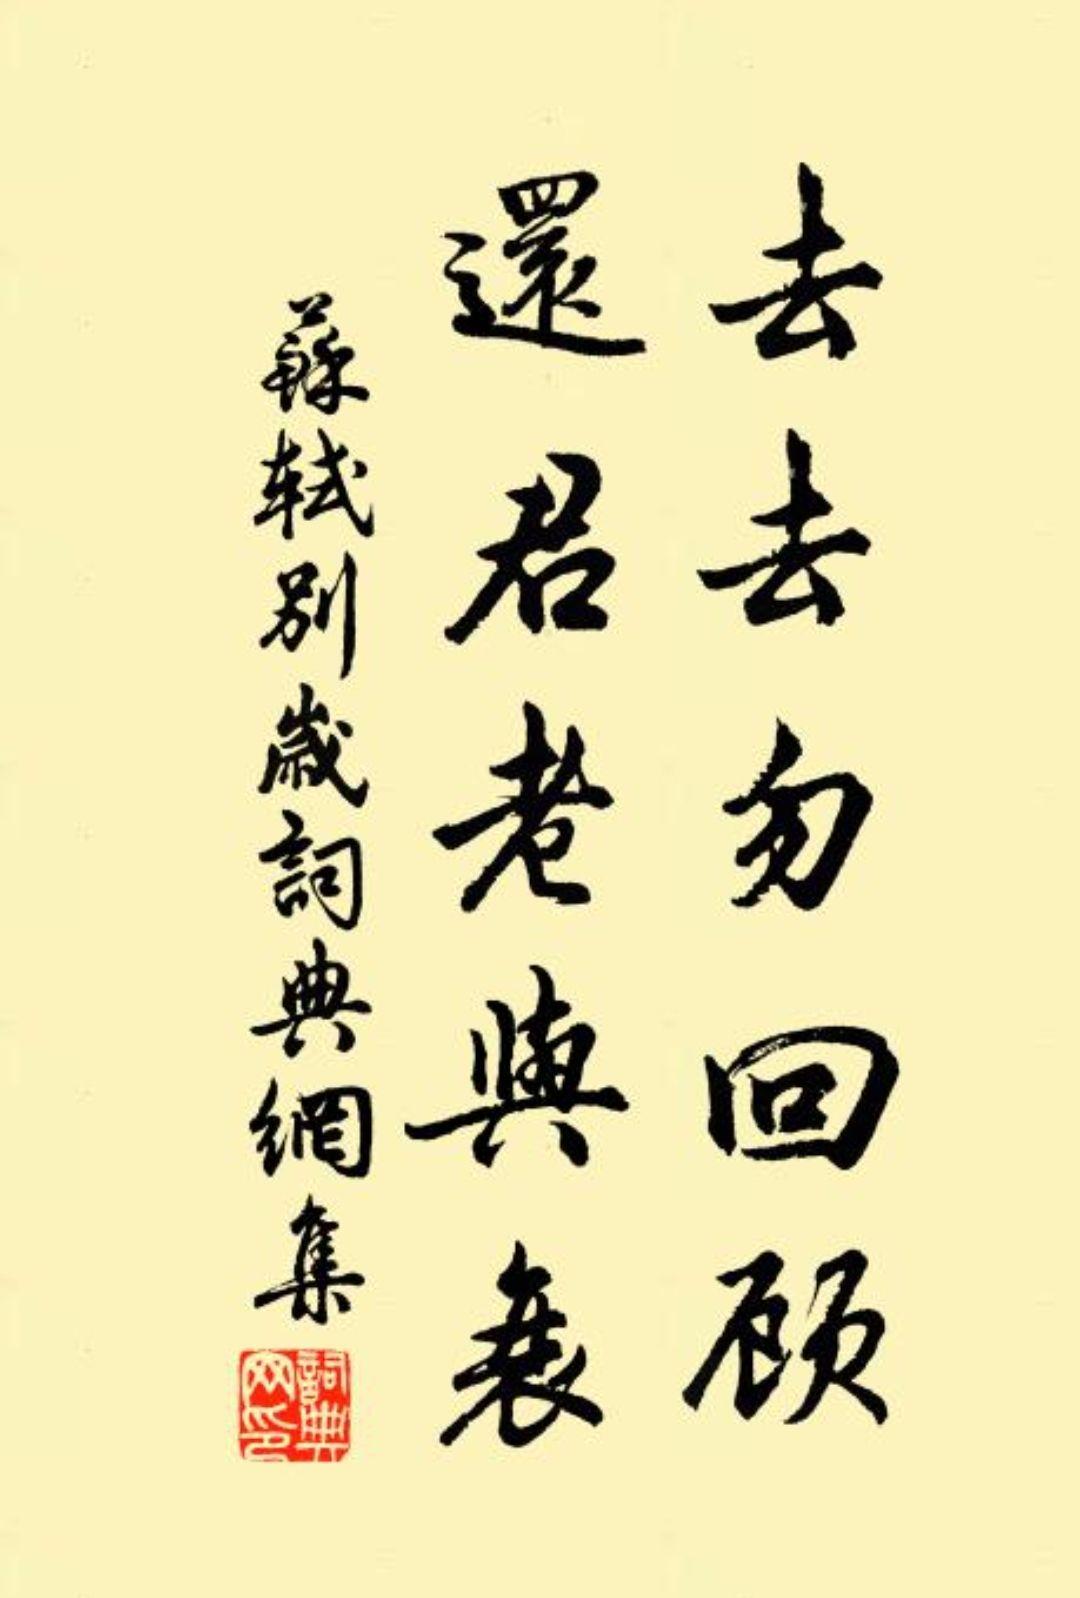 去去勿回顾
還君老與衰
蘇軾別歲詞典網集
詞典
网印